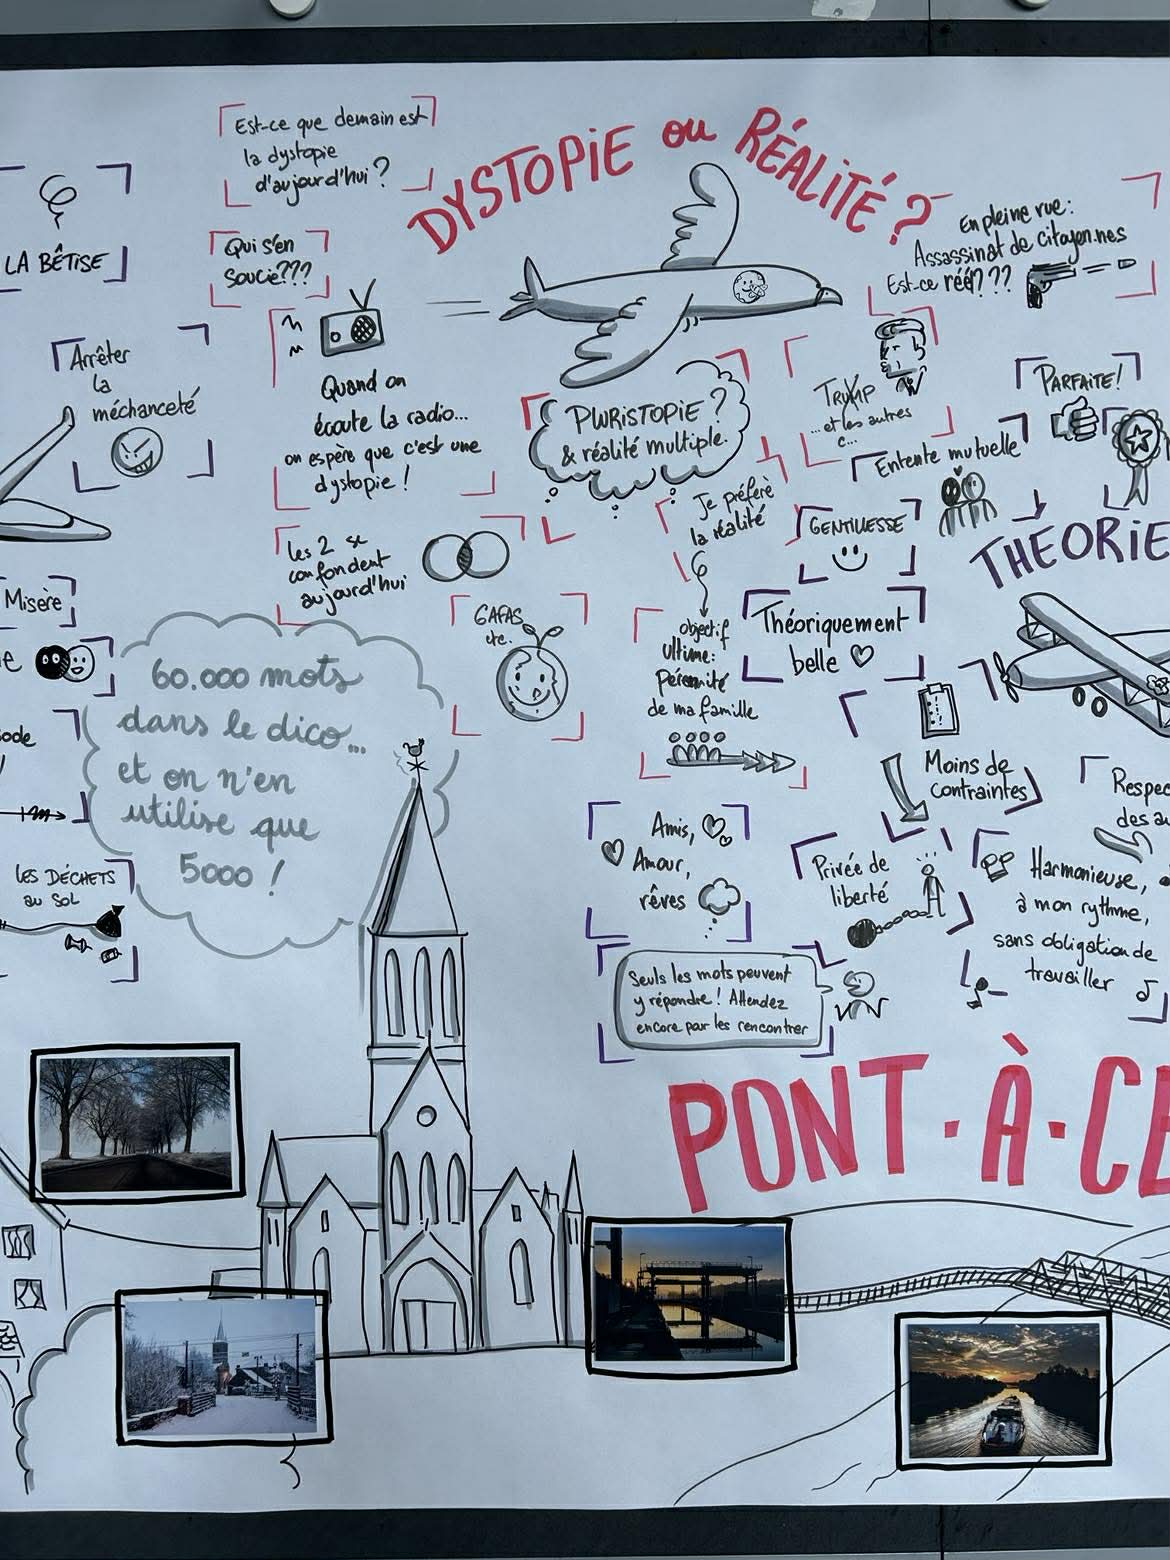 Est-ce que demain est
la dystopie
d'aujourd'hui ?
DYSTOPIE ou RÉALITÉ ?
En pleine rue :
Assassinat de citoyen.nes
Est-ce réél ???
LA BÊTISE
Qui s'en
soucie ???
Arrêter
la
méchanceté
Quand on
écoute la radio...
on espère que c'est une
dystopie !
PLURISTOPIE ?
& réalité multiple.
TRUMP
... et les autres
c...
PARFAITE !
Entente mutuelle
Je préfère
la réalité
GENTILLESSE
THEORIE
Les 2 se
confondent
aujourd'hui
Misère
GAFAS
etc.
objectif
ultime :
pérennité
de ma famille
Théoriquement
belle
60.000 mots
dans le dico...
et on n'en
utilise que
5000 !
Moins de
contraintes
Respec
des au
Amis,
Amour,
rêves
Privée de
liberté
Harmonieuse,
à mon rythme,
sans obligation de
travailler
LES DÉCHETS
au SOL
Seuls les mots peuvent
y répondre ! Attendez
encore pour les rencontrer
PONT·À·CE